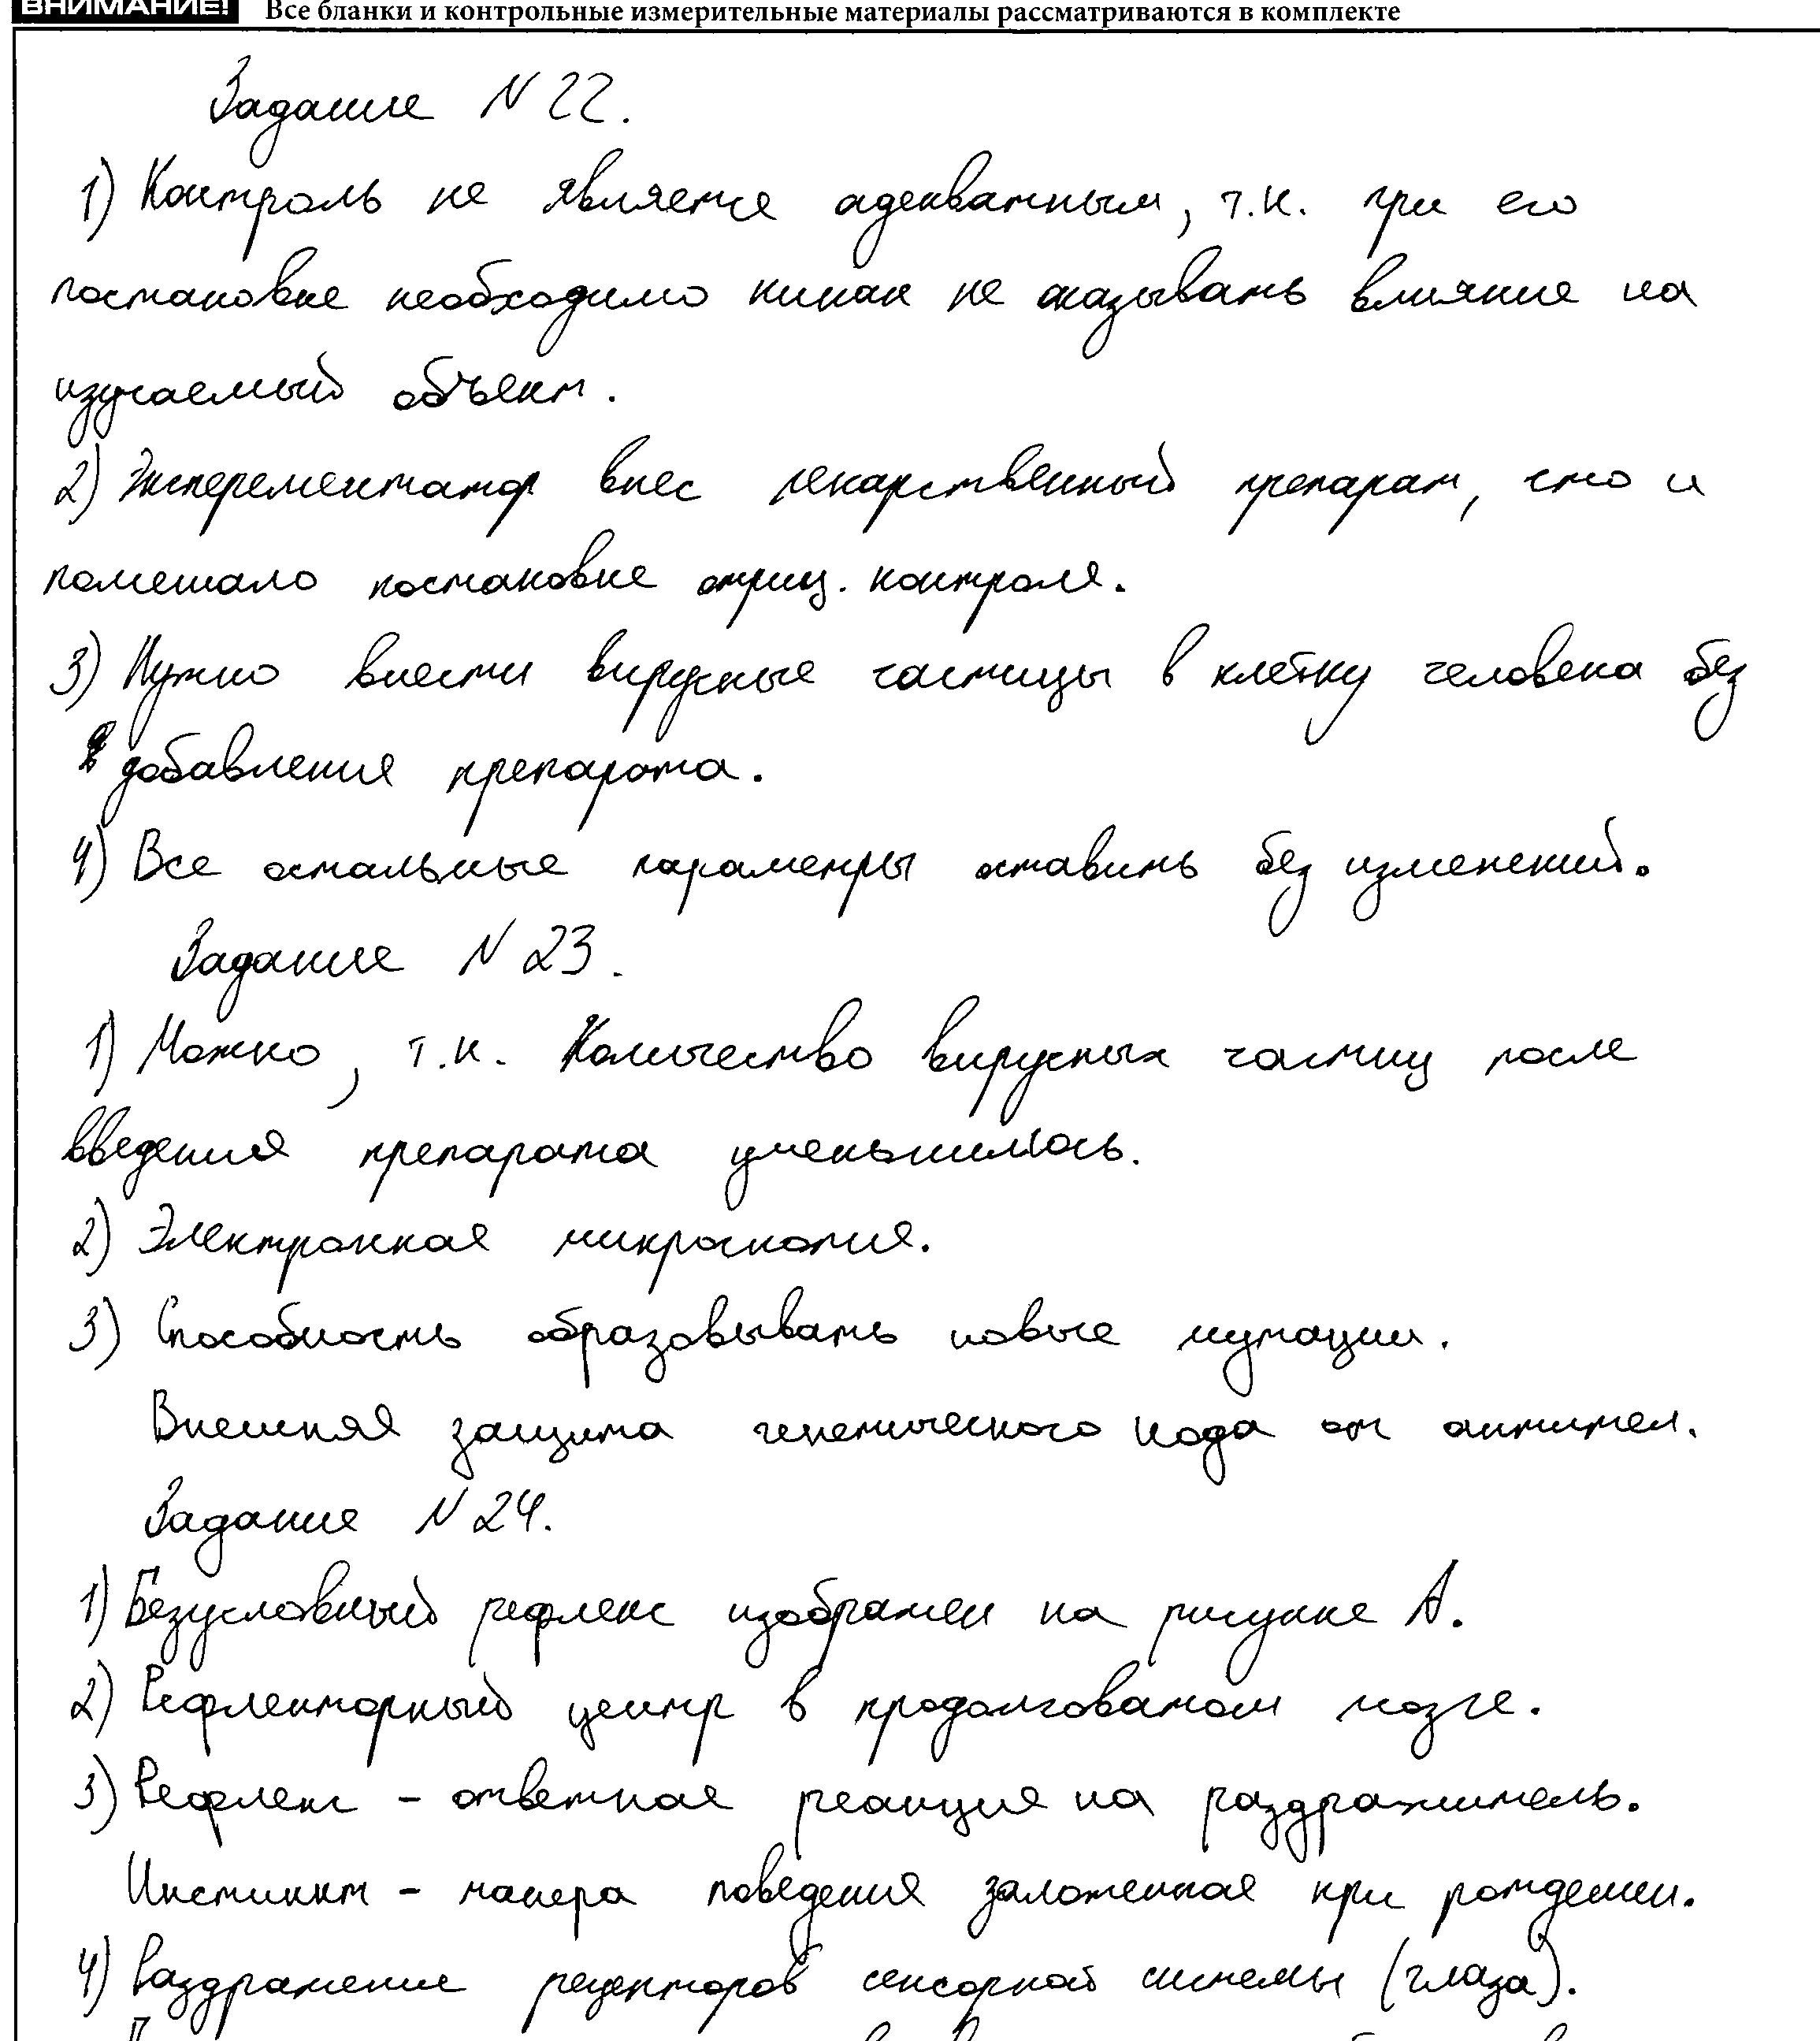 ВНИМАНИЕ! Все бланки и контрольные измерительные материалы рассматриваются в комплекте
Задание N 22.
1) Контроль не является адекватным, т.к. при его
постановке необходимо никак не оказывать влияние на
изучаемый объект.
2) Эксперементатор внес лекарственный препарат, что и
помешало постановке отриц. контроля.
3) Нужно внести вирусные частицы в клетку человека без
добавления препарата.
4) Все остальные параметры оставить без изменений.
Задание N 23.
1) Можно, т.к. Количество вирусных частиц после
введения препарата уменьшилось.
2) Электронная микроскопия.
3) Способность образовывать новые мутации.
Внешняя защита генетического кода от антител.
Задание N 24.
1) Безусловный рефлекс изображен на рисунке А.
2) Рефлекторный центр в продолговатом мозге.
3) Рефлекс - ответная реакция на раздражитель.
Инстинкт - манера поведения заложенная при рождении.
4) Раздражение рецепторов сенсорной системы (глаза).